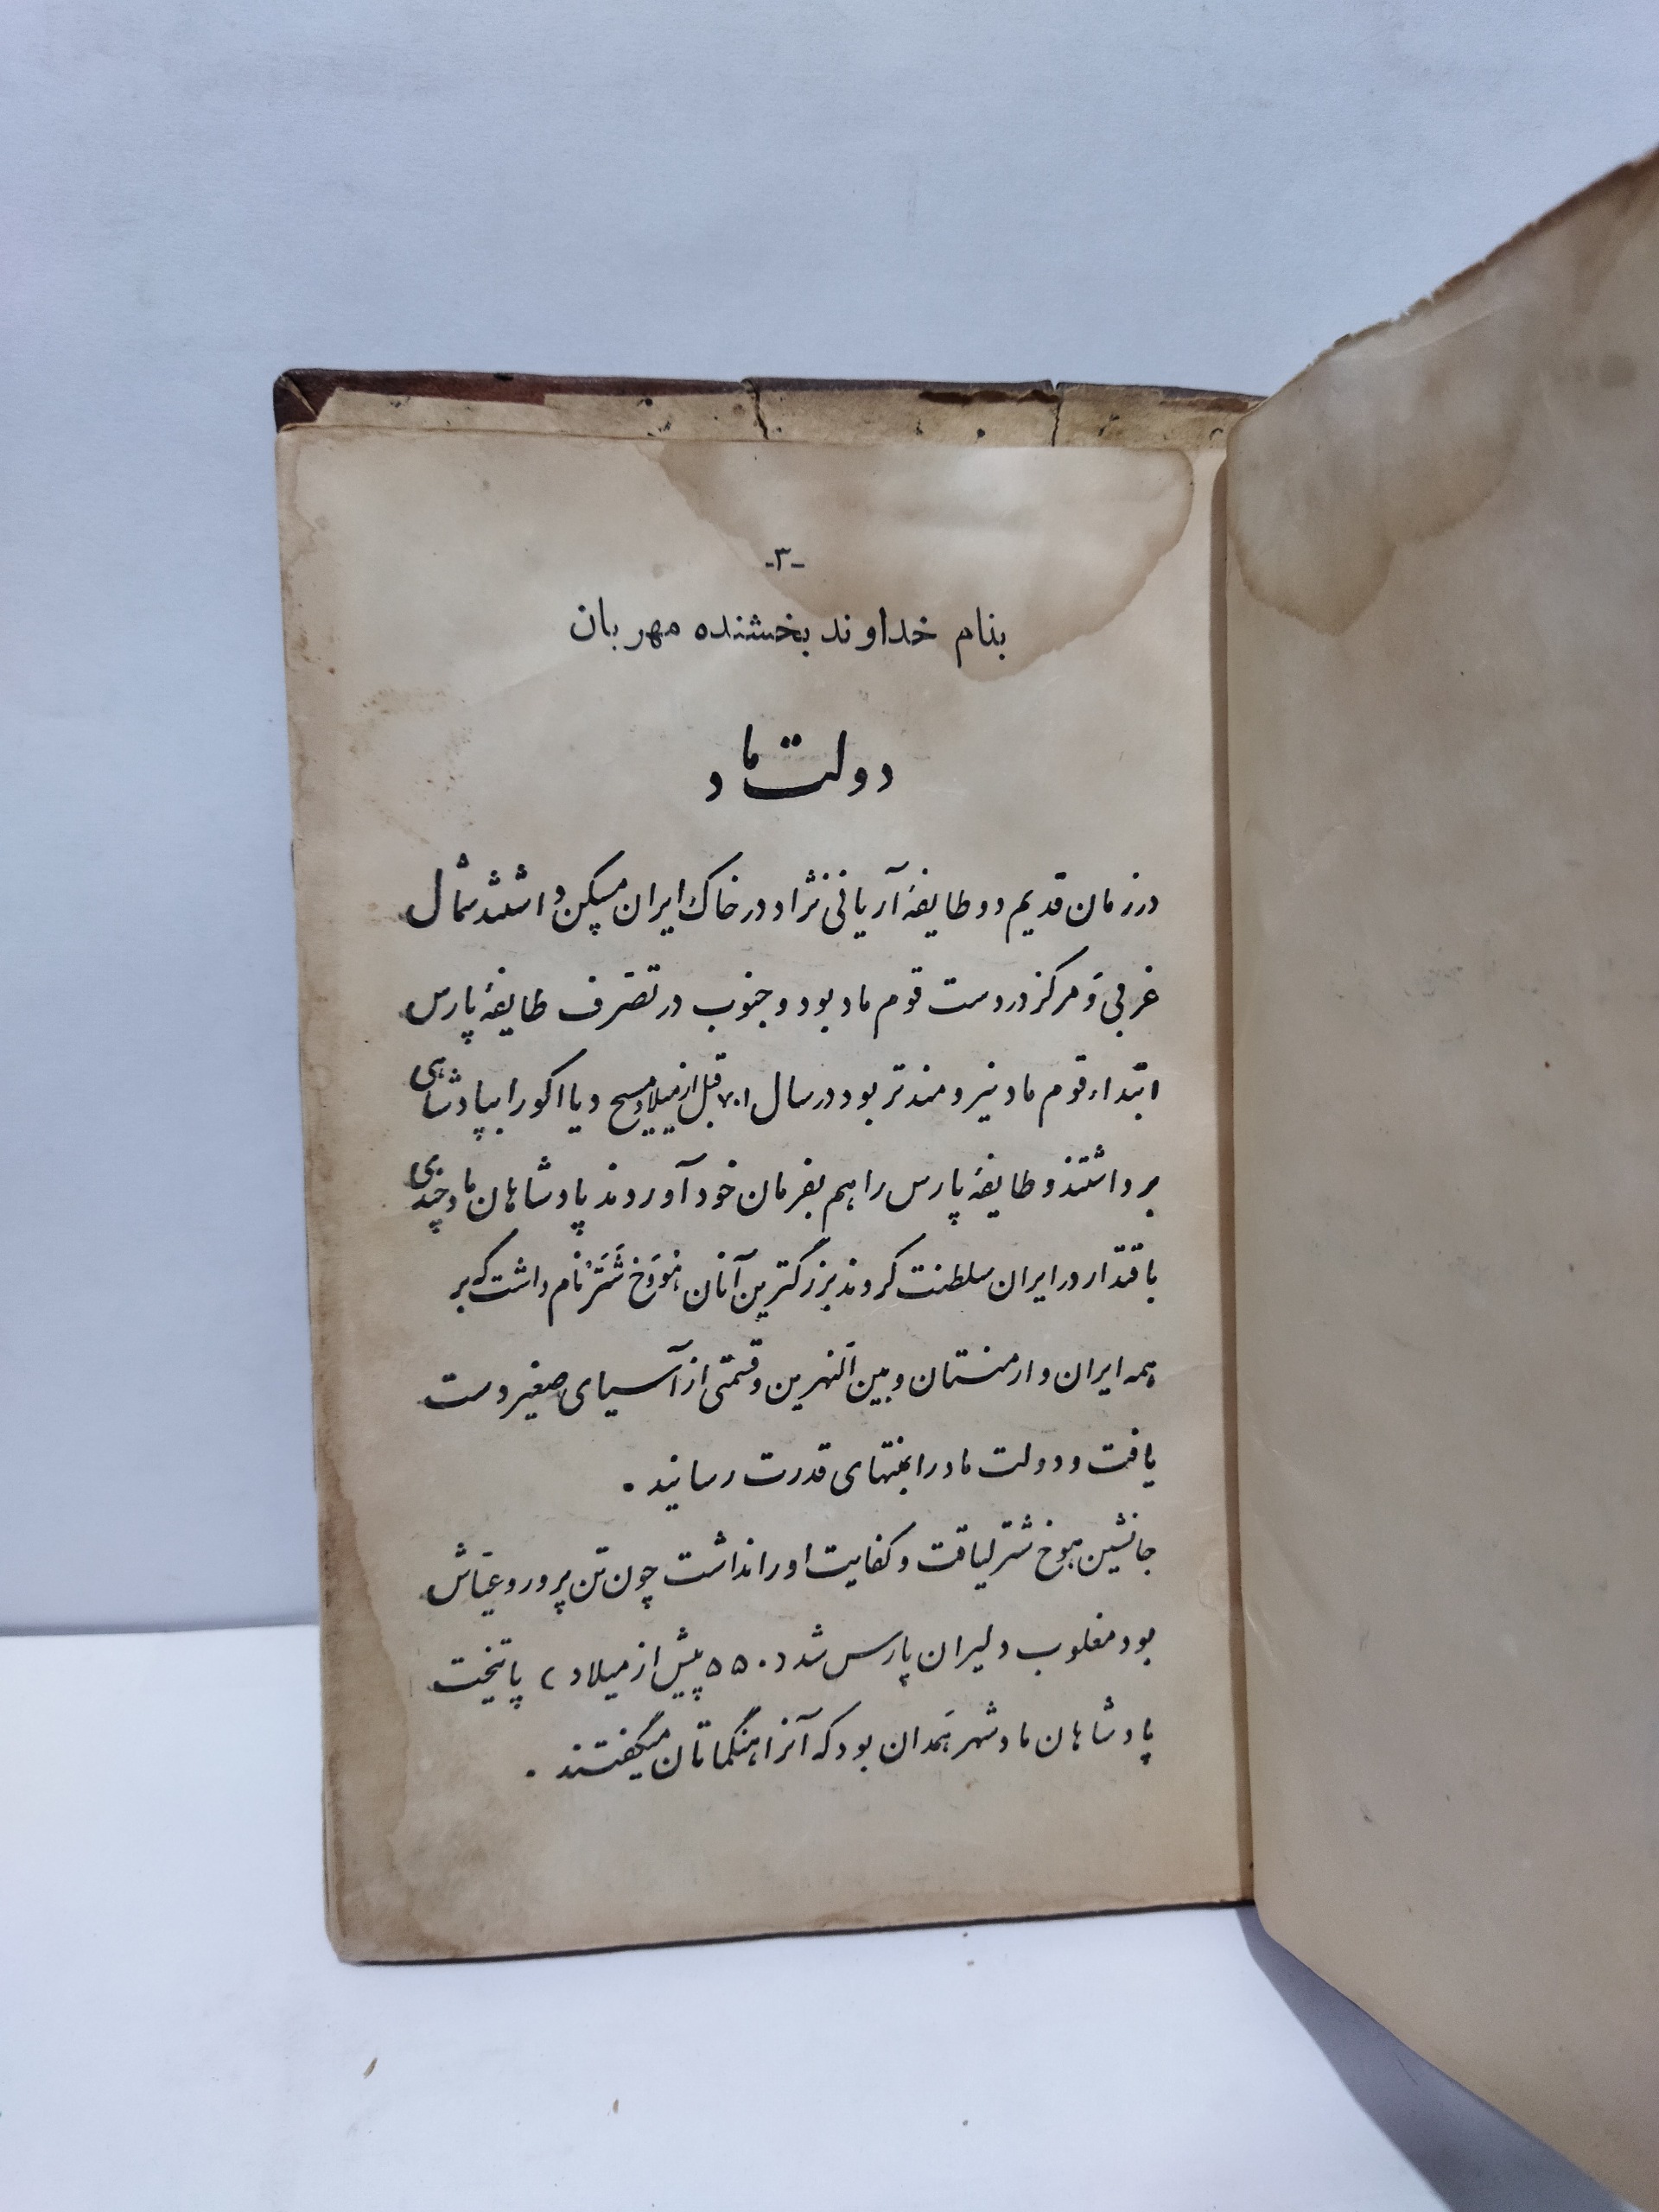 -۳-
بنام خداوند بخشنده مهربان
دولت ماد
در زمان قدیم دو طایفهٔ آریائی نژاد در خاک ایران مسکن داشتند شمال
غربی و مرکز در دست قوم ماد بود و جنوب در تصرّف طایفهٔ پارس
ابتداء قوم ماد نیرومندتر بود در سال ۷۰۱ قبل از میلاد مسیح دیااکو را بپادشاهی
برداشتند و طایفهٔ پارس را هم بفرمان خود آوردند پادشاهان ماد چندی
باقتدار در ایران سلطنت کردند بزرگترین آنان هُوَوَخ شَتَرْ نام داشت که بر
همه ایران و ارمنستان و بین النهرین و قسمتی از آسیای صغیر دست
یافت و دولت ماد را بمنتهای قدرت رسانید .
جانشین هوخ شتر لیاقت و کفایت او را نداشت چون تن پرور و عیّاش
بود مغلوب دلیران پارس شد (۵۵۰ پیش از میلاد) پایتخت
پادشاهان ماد شهر هَمدان بود که آنرا هنگماتان میگفتند .